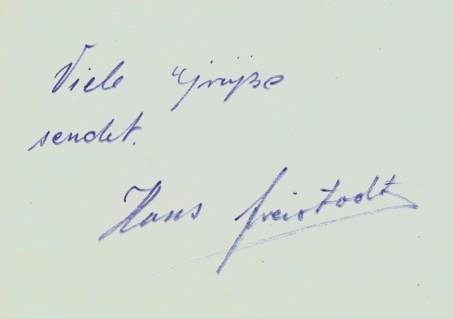 Viele Grüße
sendet.
Hans Freistadt